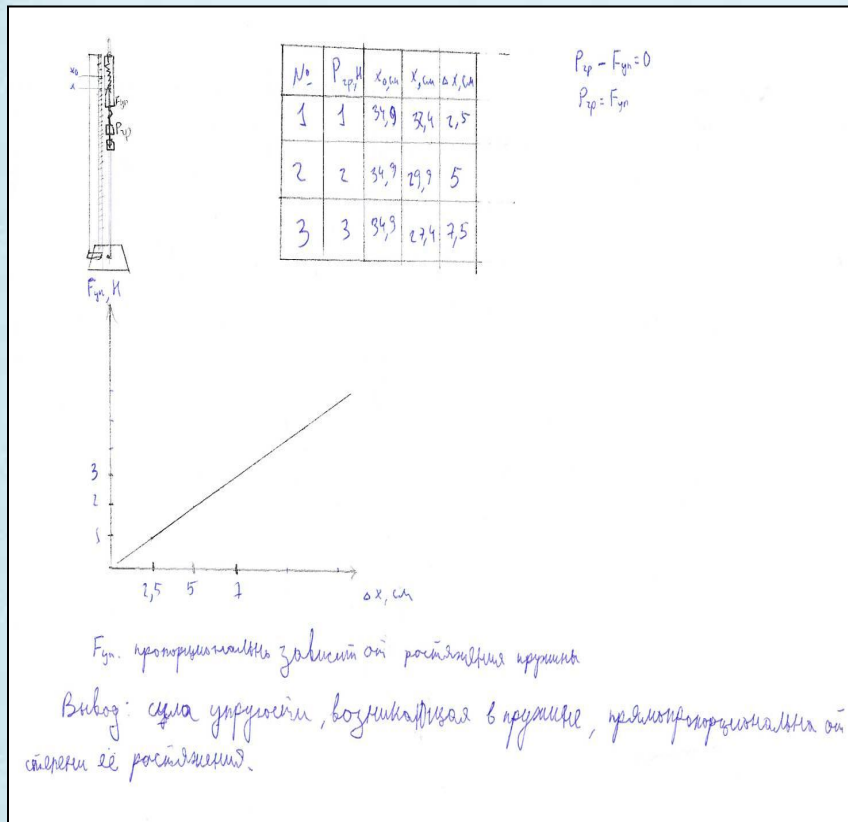 x₀
x
Fуп
Pгр
№ Pгр,Н x₀,см x,см Δx,см
1 1 34,9 32,4 2,5
2 2 34,9 29,9 5
3 3 34,9 27,4 7,5
Pгр - Fуп=0
Pгр=Fуп
Fуп,Н
3
2
1
2,5 5 7 Δx,см
Fуп. пропорционально зависит от ростяжения пружины
Вывод: сила упругости, возникающая в пружине, прямопропорциональна от
степени её ростяжения.